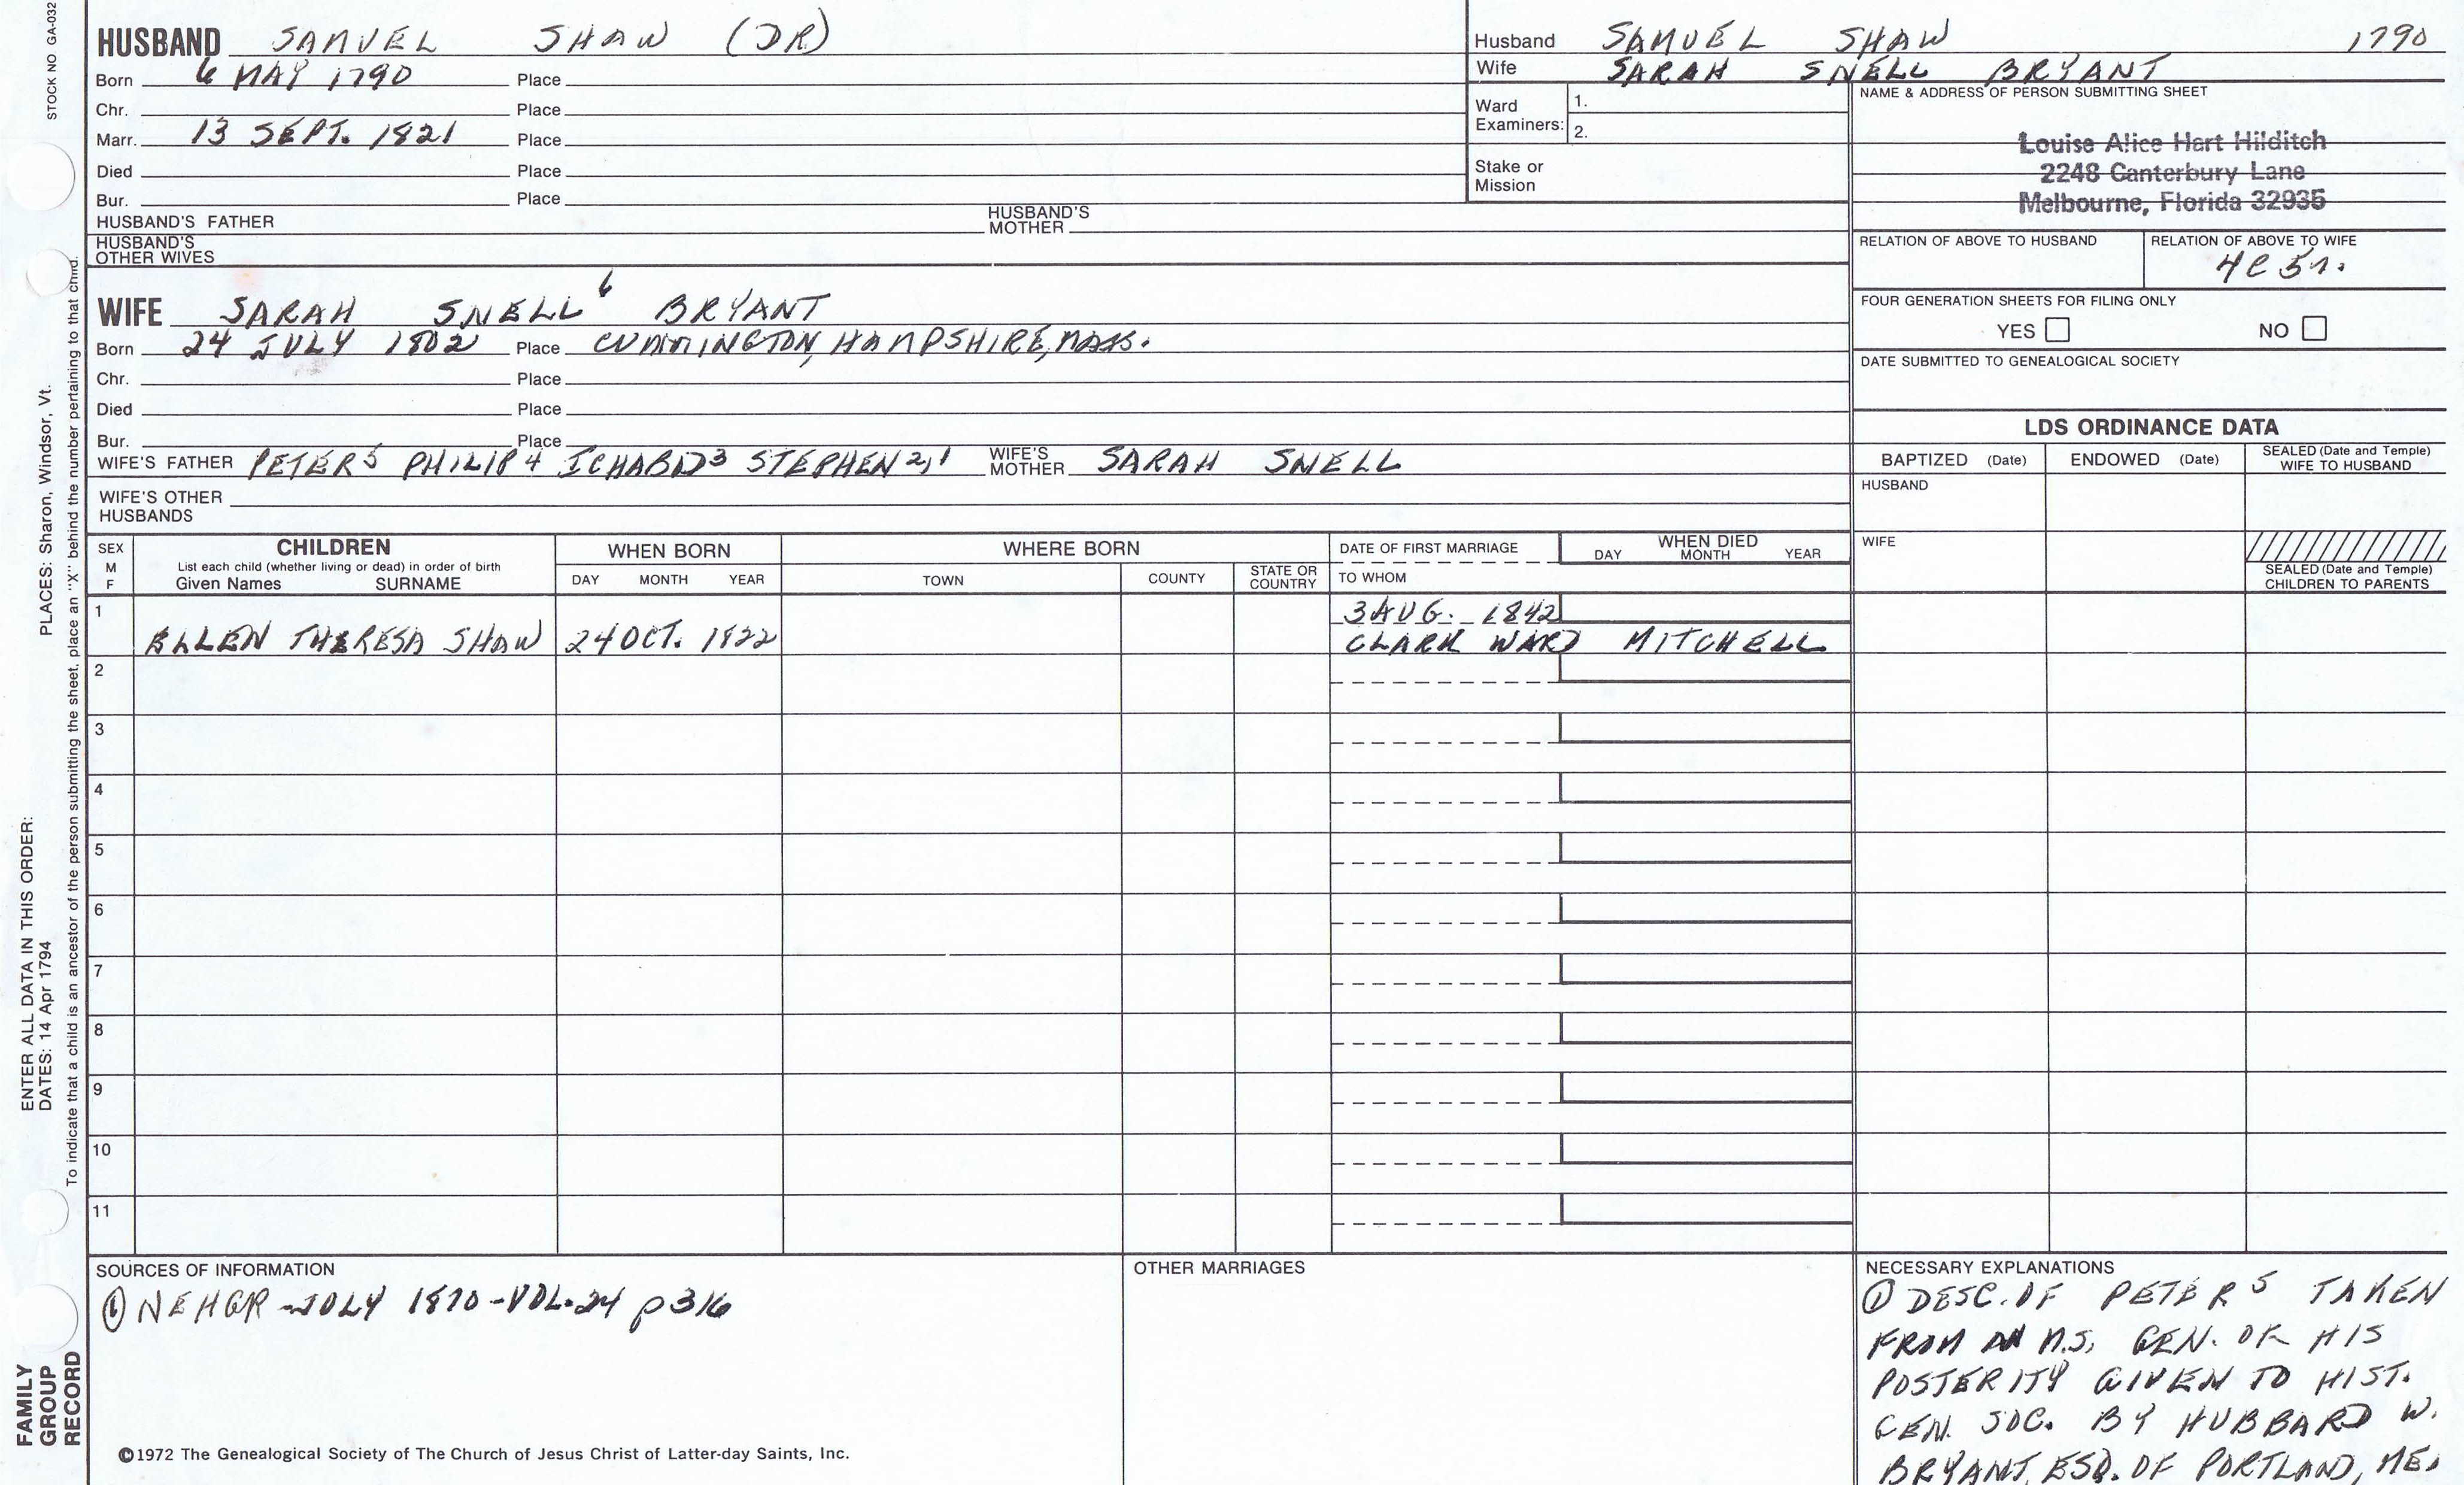 STOCK NO GA-032
HUSBAND SAMUEL SHAW (DR)
Born 6 MAY 1790 Place
Chr. Place
Marr. 13 SEPT. 1821 Place
Died Place
Bur. Place
HUSBAND'S FATHER HUSBAND'S MOTHER
HUSBAND'S OTHER WIVES
Husband SAMUEL SHAW 1790
Wife SARAH SNELL BRYANT
Ward Examiners: 1.
2.
Stake or Mission
NAME & ADDRESS OF PERSON SUBMITTING SHEET
Louise Alice Hart Hilditch
2248 Canterbury Lane
Melbourne, Florida 32935
RELATION OF ABOVE TO HUSBAND RELATION OF ABOVE TO WIFE
4C5r.
FOUR GENERATION SHEETS FOR FILING ONLY
YES NO
DATE SUBMITTED TO GENEALOGICAL SOCIETY
WIFE SARAH SNELL6 BRYANT
Born 24 JULY 1802 Place CUMMINGTON, HAMPSHIRE, MASS.
Chr. Place
Died Place
Bur. Place
WIFE'S FATHER PETER5 PHILIP4 ICHABOD3 STEPHEN2,1 WIFE'S MOTHER SARAH SNELL
WIFE'S OTHER HUSBANDS
LDS ORDINANCE DATA
BAPTIZED (Date) ENDOWED (Date) SEALED (Date and Temple) WIFE TO HUSBAND
HUSBAND
WIFE
SEALED (Date and Temple) CHILDREN TO PARENTS
SEX M F
CHILDREN
List each child (whether living or dead) in order of birth
Given Names SURNAME
WHEN BORN
DAY MONTH YEAR
WHERE BORN
TOWN COUNTY STATE OR COUNTRY
DATE OF FIRST MARRIAGE
TO WHOM
WHEN DIED
DAY MONTH YEAR
1 3 AUG. 1842
ELLEN THERESA SHAW 24 OCT. 1822 CLARK WARD MITCHELL
2
3
4
5
6
7
8
9
10
11
SOURCES OF INFORMATION
① NEHGR - JULY 1870 - VOL. 24 p 316
OTHER MARRIAGES
NECESSARY EXPLANATIONS
① DESC. OF PETER5 TAKEN
FROM M.S. GEN. OF HIS
POSTERITY GIVEN TO HIST.
GEN. SOC. BY HUBBARD W.
BRYANT, ESQ. OF PORTLAND, ME.
©1972 The Genealogical Society of The Church of Jesus Christ of Latter-day Saints, Inc.
FAMILY
GROUP
RECORD
ENTER ALL DATA IN THIS ORDER:
DATES: 14 Apr 1794 PLACES: Sharon, Windsor, Vt.
To indicate that a child is an ancestor of the person submitting the sheet, place an "X" behind the number pertaining to that child.